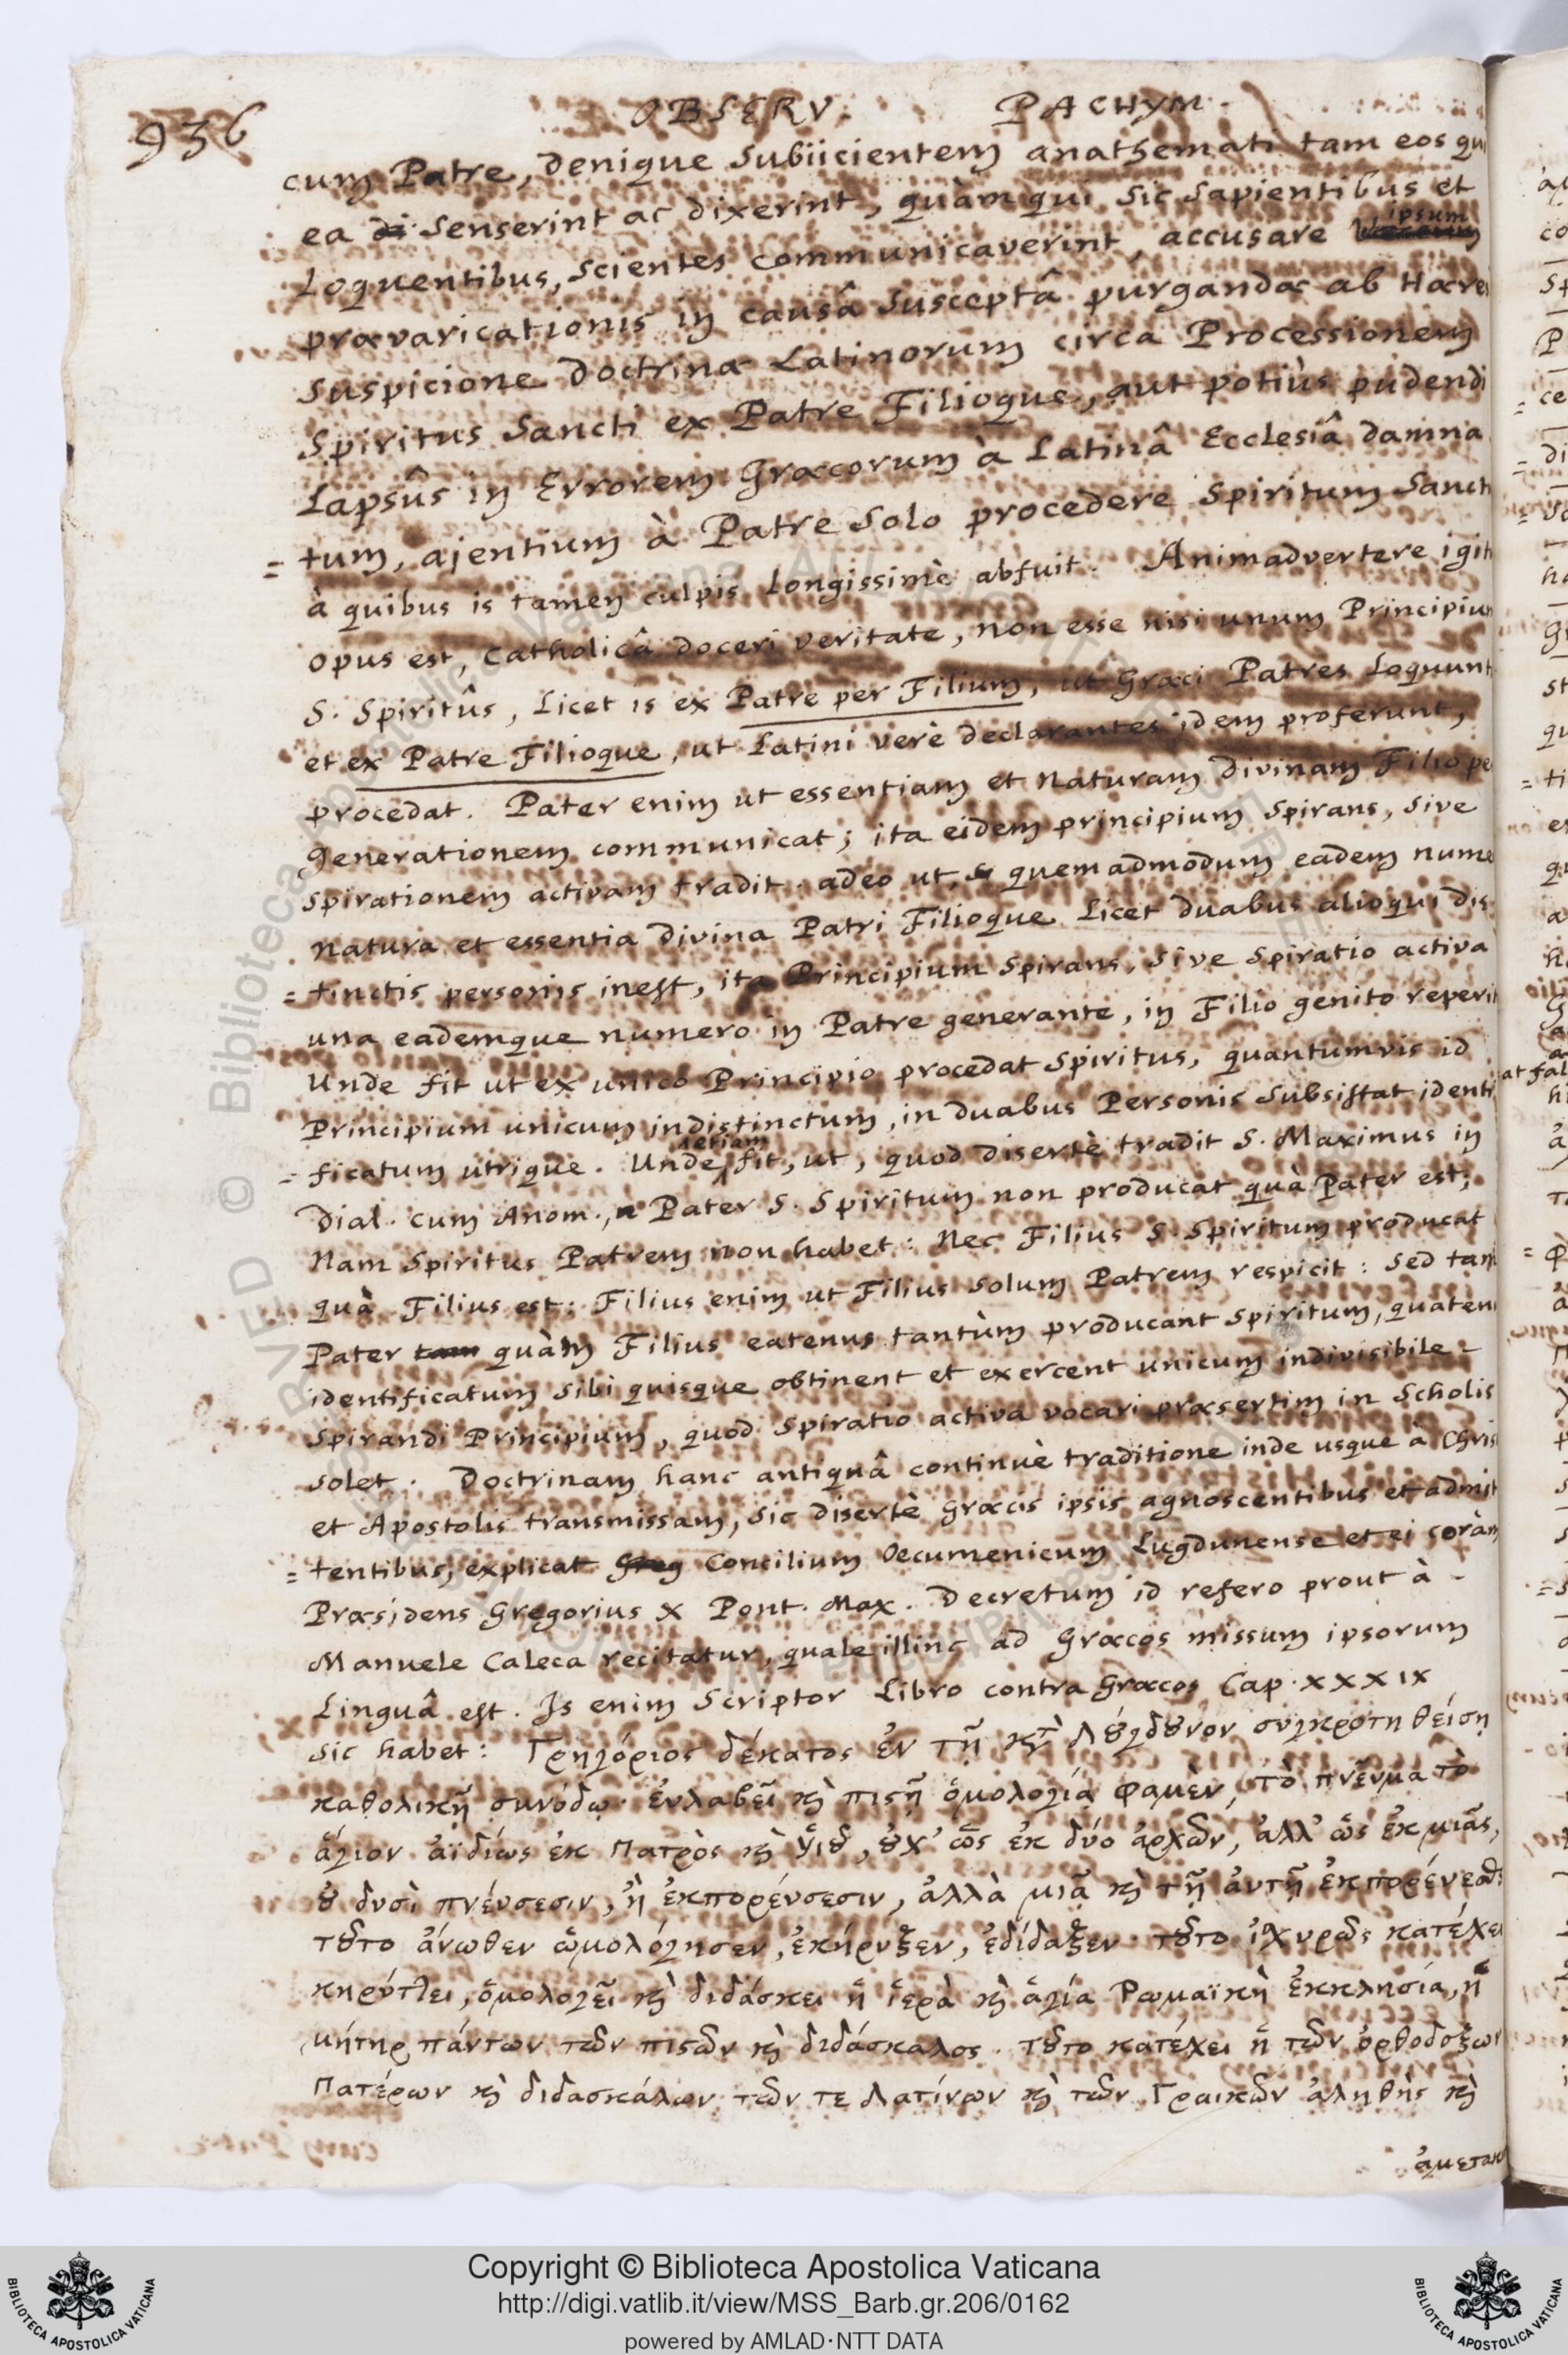 936
OBSERV. PACHYM.
cum Patre, denique subiicientem anathemati tam eos qui
ea senserint ac dixerint, quàm qui sic sapientibus et
ipsum
loquentibus, scientes communicaverint, accusare
prævaricationis in causâ susceptâ purgandæ ab Hære
suspicione doctrinæ Latinorum circa Processionem
Spiritus Sancti ex Patre Filioque, aut potiùs pudendi
Lapsûs in Errorem Græcorum à Latinâ Ecclesiâ damna
= tum, ajentium à Patre solo procedere Spiritum Sanct
à quibus is tamen culpis longissimè abfuit. Animadvertere igit
opus est, catholicâ doceri veritate, non esse nisi unum Principium
S. Spiritûs, licet is ex Patre per Filium, ut Græci Patres loquunt
et ex Patre Filioque, ut Latini verè declarantes idem proferunt,
procedat. Pater enim ut essentiam et naturam divinam Filio pe
generationem communicat; ita eidem principium spirans, sive
spirationem activam tradit. adeo ut, quemadmodum eadem nume
natura et essentia divina Patri Filioque licet duabus alioqui dis
= tinctis personis inest, ita Principium spirans, sive spiratio activa
una eademque numero in Patre generante, in Filio genito reperit
Unde fit ut ex unico Principio procedat Spiritus, quantumvis id
Principium unicum indistinctum, in duabus Personis subsistat identi
etiam
= ficatum utrique. Unde fit, ut, quod disertè tradit S. Maximus in
Dial. cum Anom., Pater S. Spiritum non producat quà Pater est;
Nam Spiritus Patrem non habet: Nec Filius S. Spiritum producat
quà Filius est: Filius enim ut Filius solum Patrem respicit: sed tam
Pater quàm Filius eatenus tantùm producant Spiritum, quaten
identificatum sibi quisque obtinent et exercent unicum indivisibile
spirandi Principium, quod Spiratio activa vocari præsertim in Scholis
solet. Doctrinam hanc antiquâ continuè traditione inde usque à Chris
et Apostolis transmissam, sic disertè Græcis ipsis agnoscentibus et admit
= tentibus, explicat Concilium Oecumenicum Lugdunense et ei coràm
Præsidens Gregorius X Pont. Max. Decretum id refero prout à
Manuele Caleca recitatur, quale illinc ad Græcos missum ipsorum
Linguâ est. Is enim Scriptor Libro contra Græcos Cap. XXXIX
sic habet: Γρηγόριος δέκατος ἐν τῇ κτ̀ Λȣ́γδȣνον συγκροτηθείσῃ
καθολικῇ συνόδῳ. ἐυλαβεῖ κὶ πιςῇ ὁμολογίᾳ φαμὲν, τὸ πνεῦμα τὸ
ἅγιον ἀϊδίως ἐκ Πατρὸς κὶ ὑιȣ͂, ȣ̓χ' ὡς ἐκ δύο ἀρχῶν, ἀλλ' ὡς ἐκ μιᾶς,
ȣ̓ δυσὶ πνέυσεσιν, ἢ ἐκπορέυσεσιν, ἀλλὰ μιᾷ κὶ τῇ ἀυτῇ ἐκπορέυεσθ
τȣ͂το ἄνωθεν ὡμολόγησεν, ἐκήρυξεν, ἐδίδαξεν. τȣ͂το ἰχυρῶς κατέχει
κηρύττει, ὁμολογεῖ κὶ διδάσκει ἡ ἱερὰ κὶ ἁγία Ρωμαϊκὴ ἐκκλησία, ἡ
μήτηρ πάντων τῶν πιςῶν κὶ διδάσκαλος. τȣ͂το κατέχει ἡ τῶν ὀρθοδόξων
Πατέρων κὶ διδασκάλων τῶν τε Λατίνων κὶ τῶν Γραικῶν ἀληθὴς κὶ
ἀμετακ
Copyright © Biblioteca Apostolica Vaticana
http://digi.vatlib.it/view/MSS_Barb.gr.206/0162
powered by AMLAD·NTT DATA
BIBLIOTECA APOSTOLICA VATICANA
BIBLIOTECA APOSTOLICA VATICANA